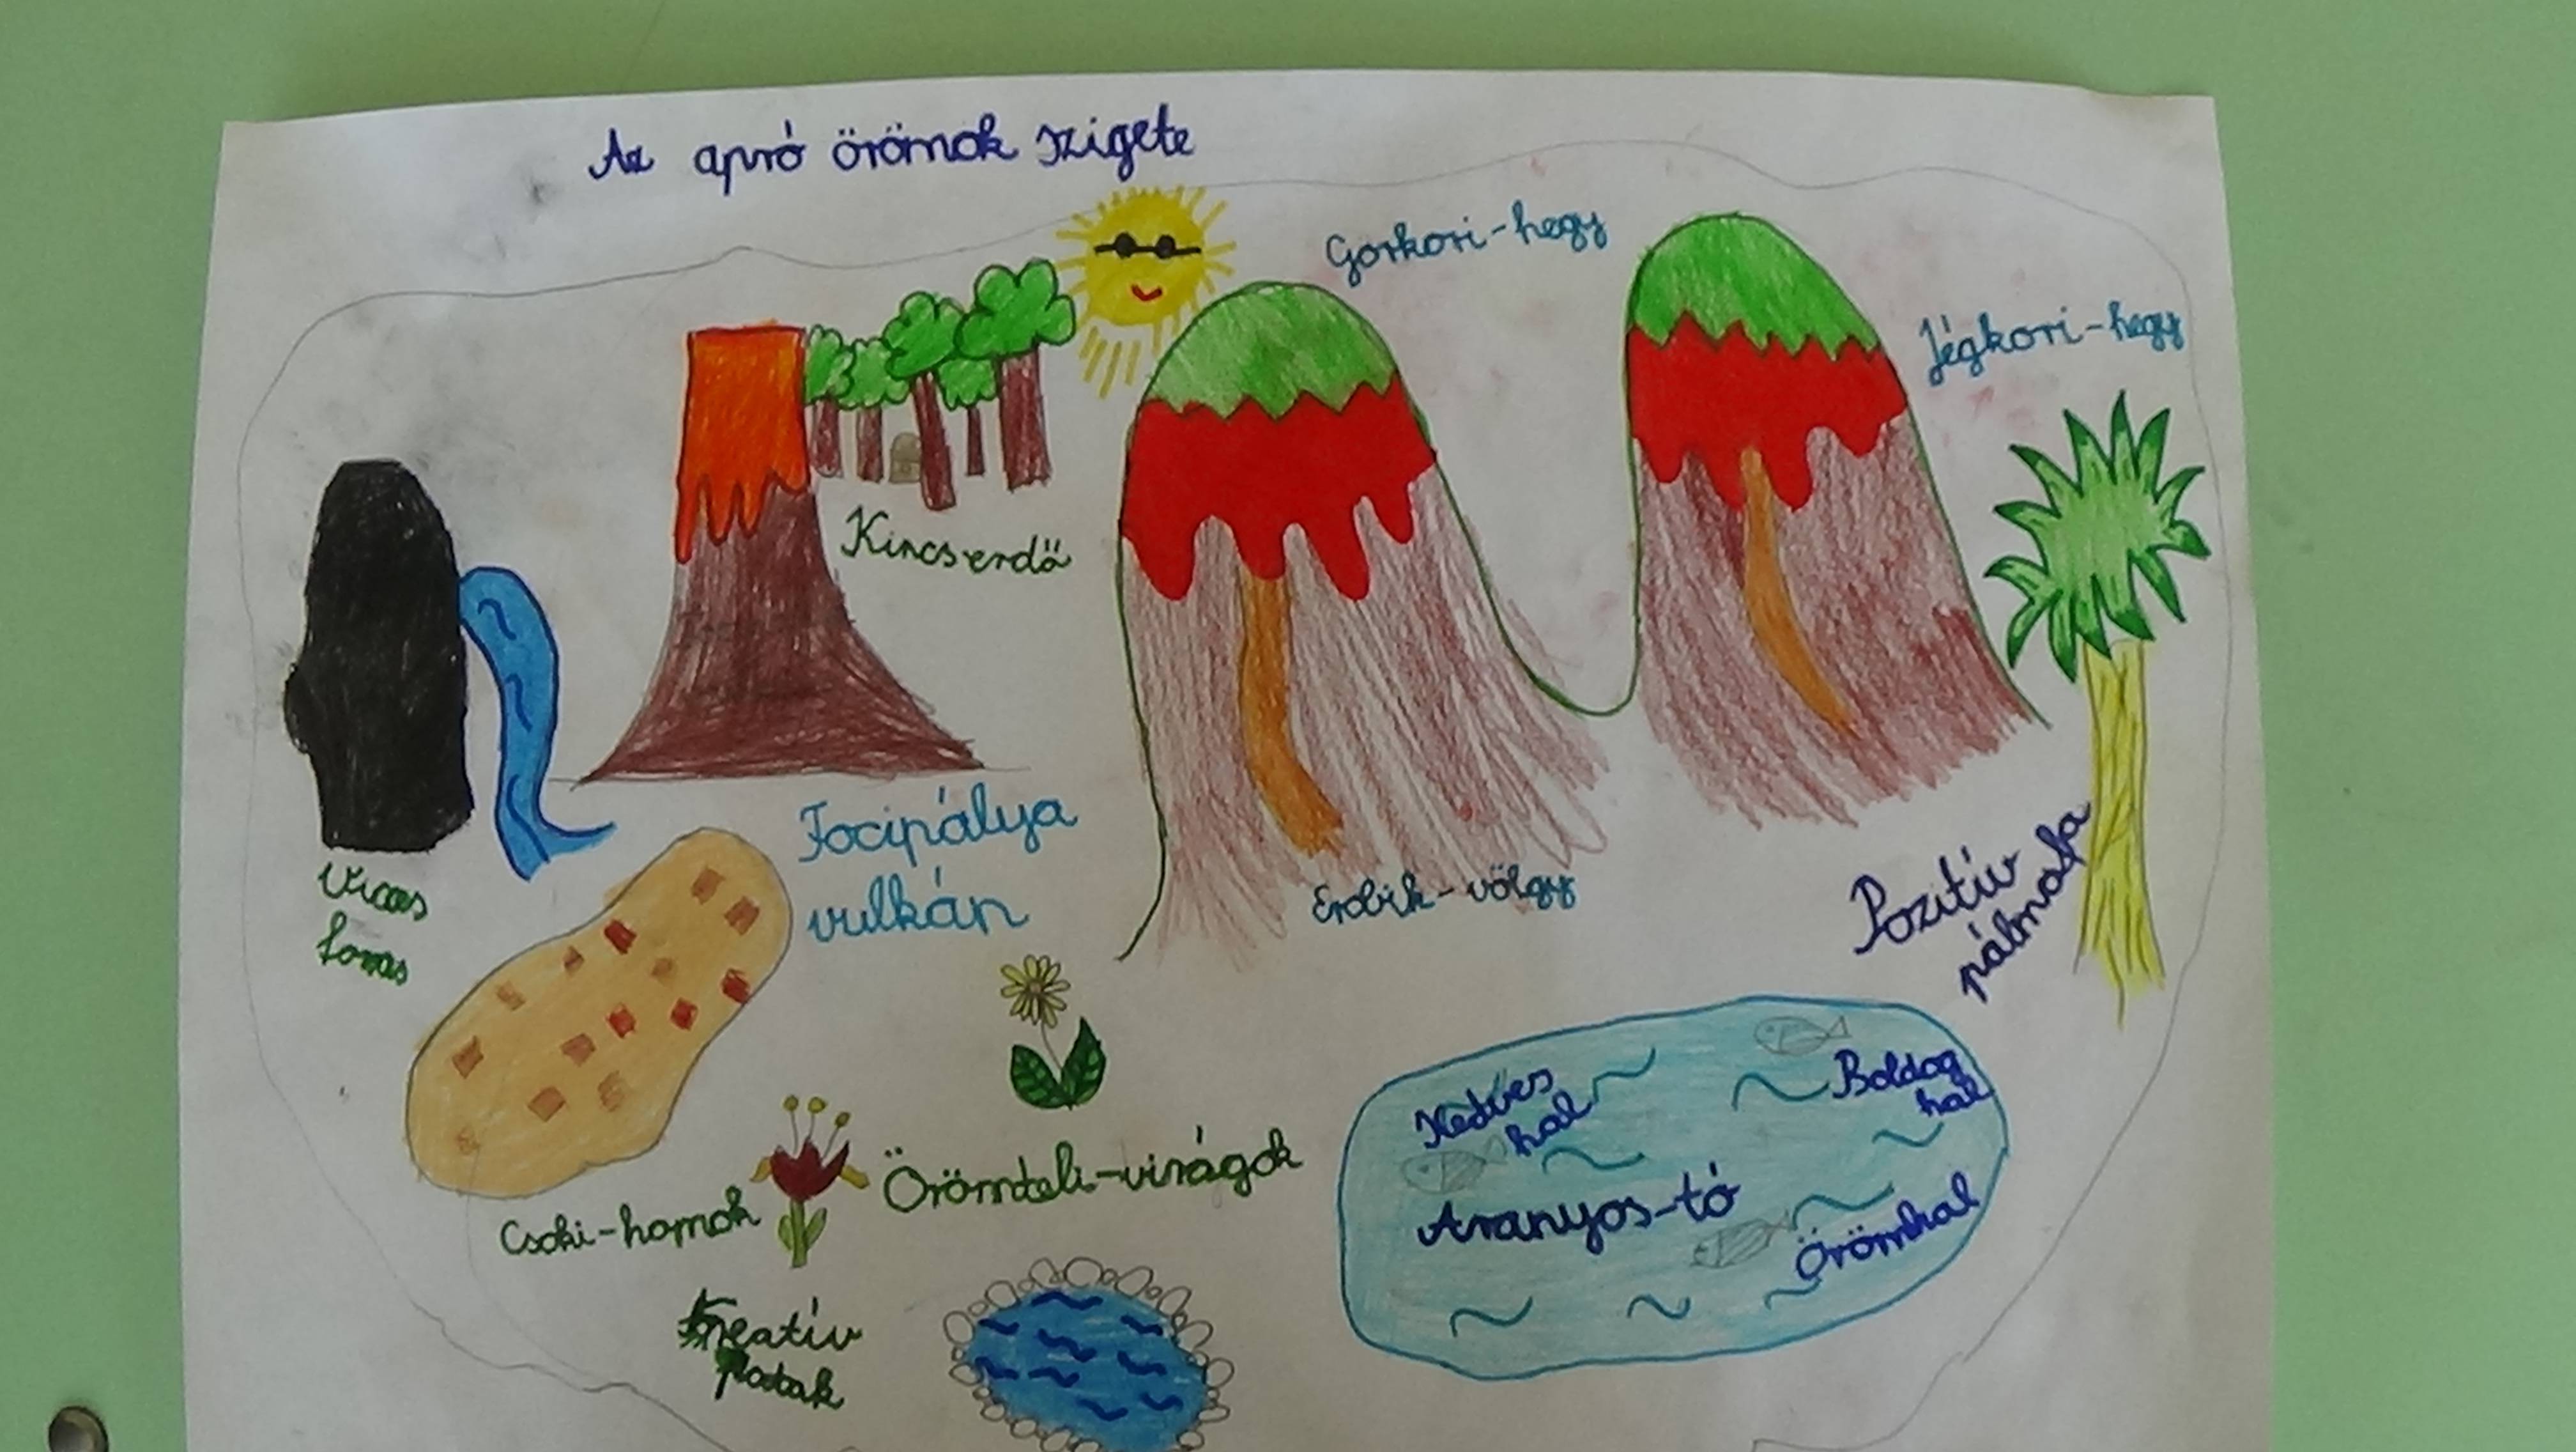 Az apró örömök szigete
Gorkori-hegy
Jégkori-hegy
Kincserdő
Focipálya
vulkán
Vicces
forrás
Erobik-völgy
Pozitív
pálmafa
Kedves
hal
Boldog
hal
Aranyos-tó
Örömhal
Örömteli-virágok
Csoki-homok
Kreatív
Patak